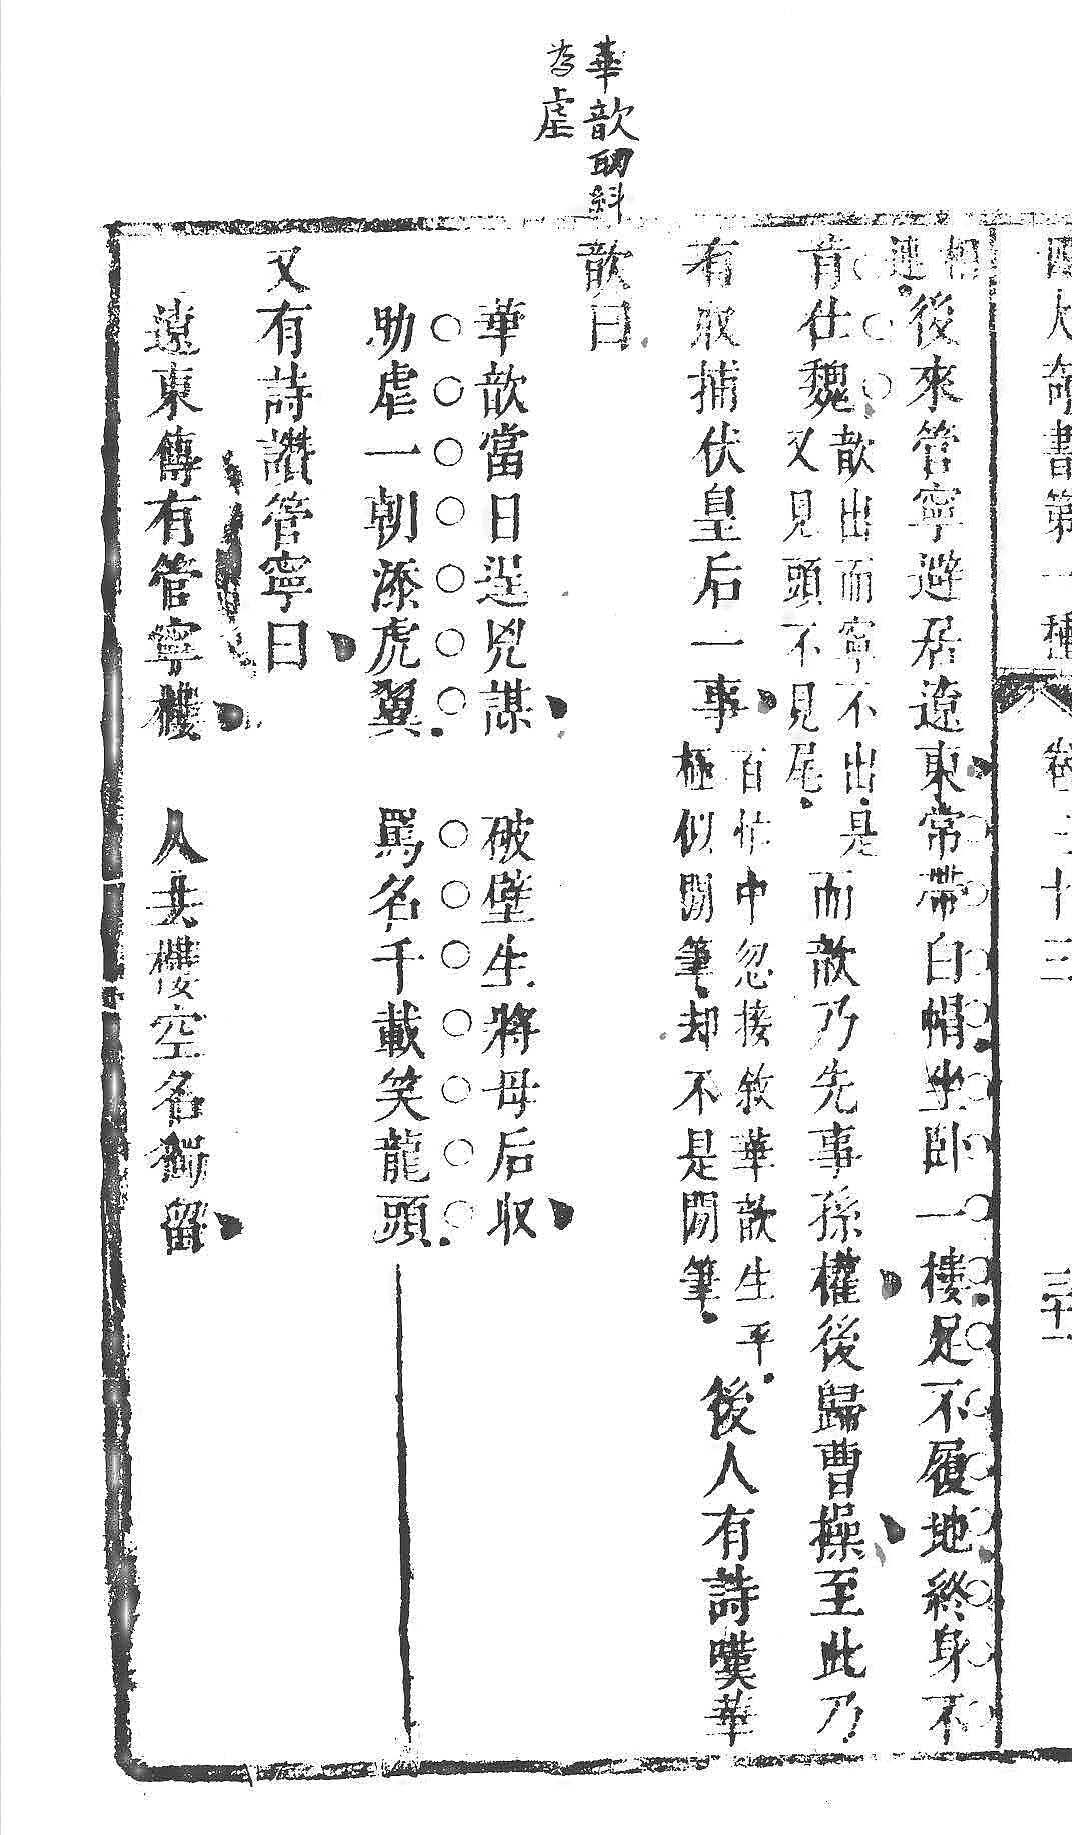 四大奇書第一種 卷三十三 三十一
相
後來管寧避居遼東常帶白帽坐臥一樓足不履地終身不
肯仕魏
歆出而寧不出是
又見頭不見尾
而歆乃先事孫權後歸曹操至此乃
有収捕伏皇后一事
百忙中忽接敘華歆生平
極似閒筆却不是閒筆
後人有詩嘆華
歆曰
華歆助紂
为虐
華歆當日逞兇謀 破壁生將母后収
助虐一朝添虎翼 罵名千載笑龍頭
又有詩讚管寧曰
遼東傳有管寧樓 人去樓空名獨留